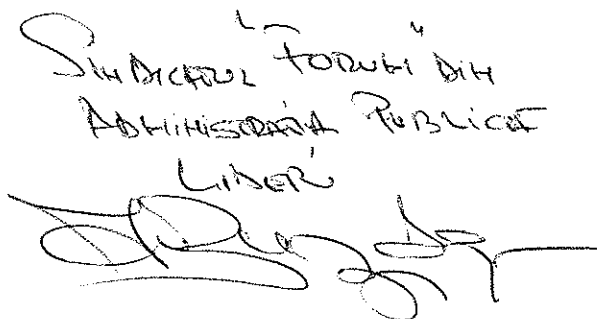 SINDICATUL "FORUM" DIN
ADMINISTRAȚIA PUBLICĂ
LIDER